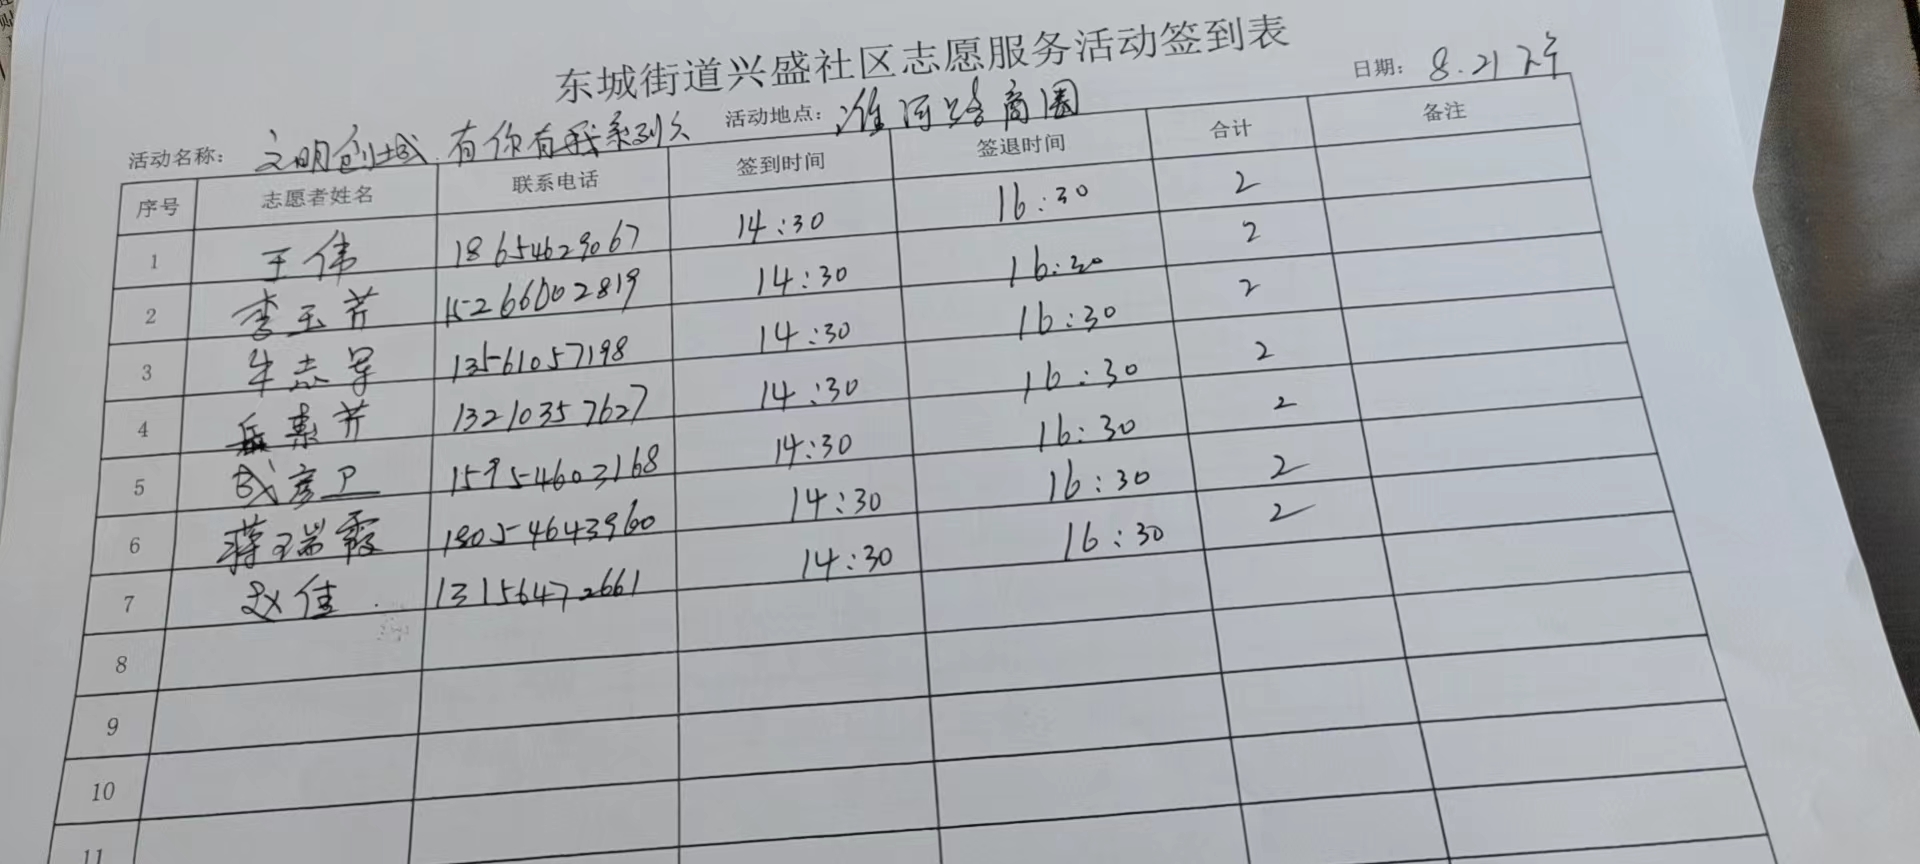 东城街道兴盛社区志愿服务活动签到表
活动名称: 文明创城.有你有我系列 活动地点: 淮河路商圈 日期: 8.21 下午
序号 志愿者姓名 联系电话 签到时间 签退时间 合计 备注
1 王伟 18654629067 14:30 16:30 2
2 李玉芹 15266002819 14:30 16:30 2
3 牛志军 13561057198 14:30 16:30 2
4 岳素芹 13210357627 14:30 16:30 2
5 成彦卫 15954603168 14:30 16:30 2
6 蒋瑞霞 18054643960 14:30 16:30 2
7 赵佳 13156472661 14:30 16:30 2
8
9
10
11